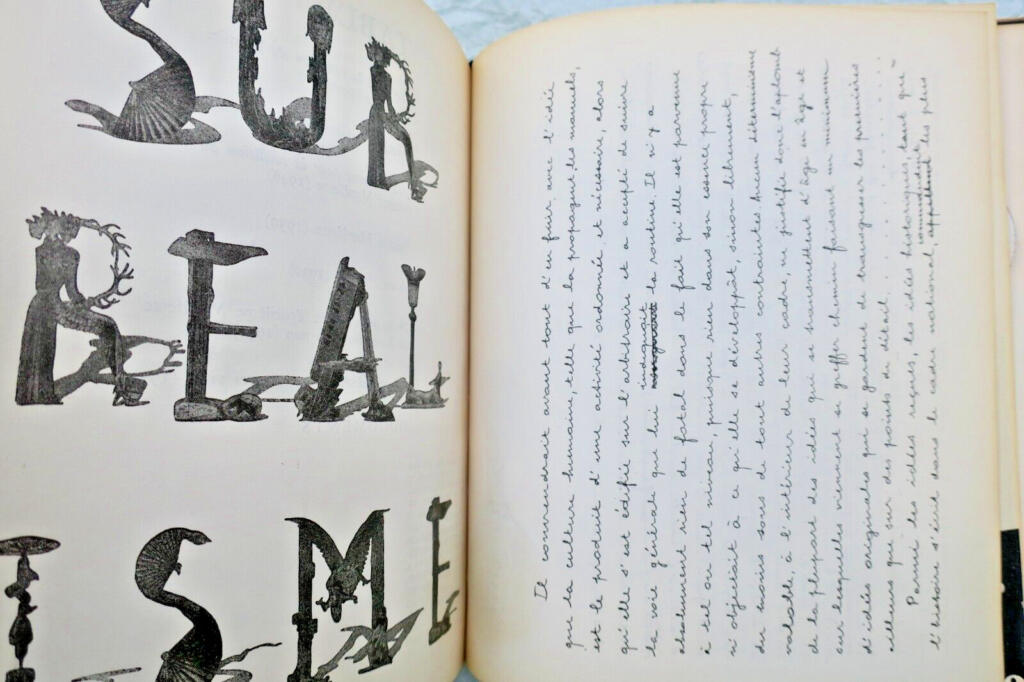 SUR
REAL
ISME
Il conviendrait avant tout d'en finir avec l'idée
que la culture humaine, telle que la propagent les manuels,
est le produit d'une activité ordonnée et nécessaire, alors
qu'elle s'est édifiée sur l'arbitraire et a accepté de suivre
la voie générale que lui indiquait la routine. Il n'y a
absolument rien de fatal dans le fait qu'elle est parvenue
à tel ou tel niveau, puisque rien dans son essence propre
n'objectait à ce qu'elle se développât, sinon librement,
du moins sous de tout autres contraintes. Aucun déterminisme
valable, à l'intérieur de leur cadre, ne justifie donc l'aplomb
de la plupart des idées qui se transmettent d'âge en âge et
sur lesquelles viennent se greffer chemin faisant un minimum
d'idées originales qui se gardent de transgresser les premières
ailleurs que sur des points de détail. . . . . . . . . . . .
Parmi les idées reçues, les idées historiques, tant que
l'histoire s'écrit dans le cadre national, commandent les plus